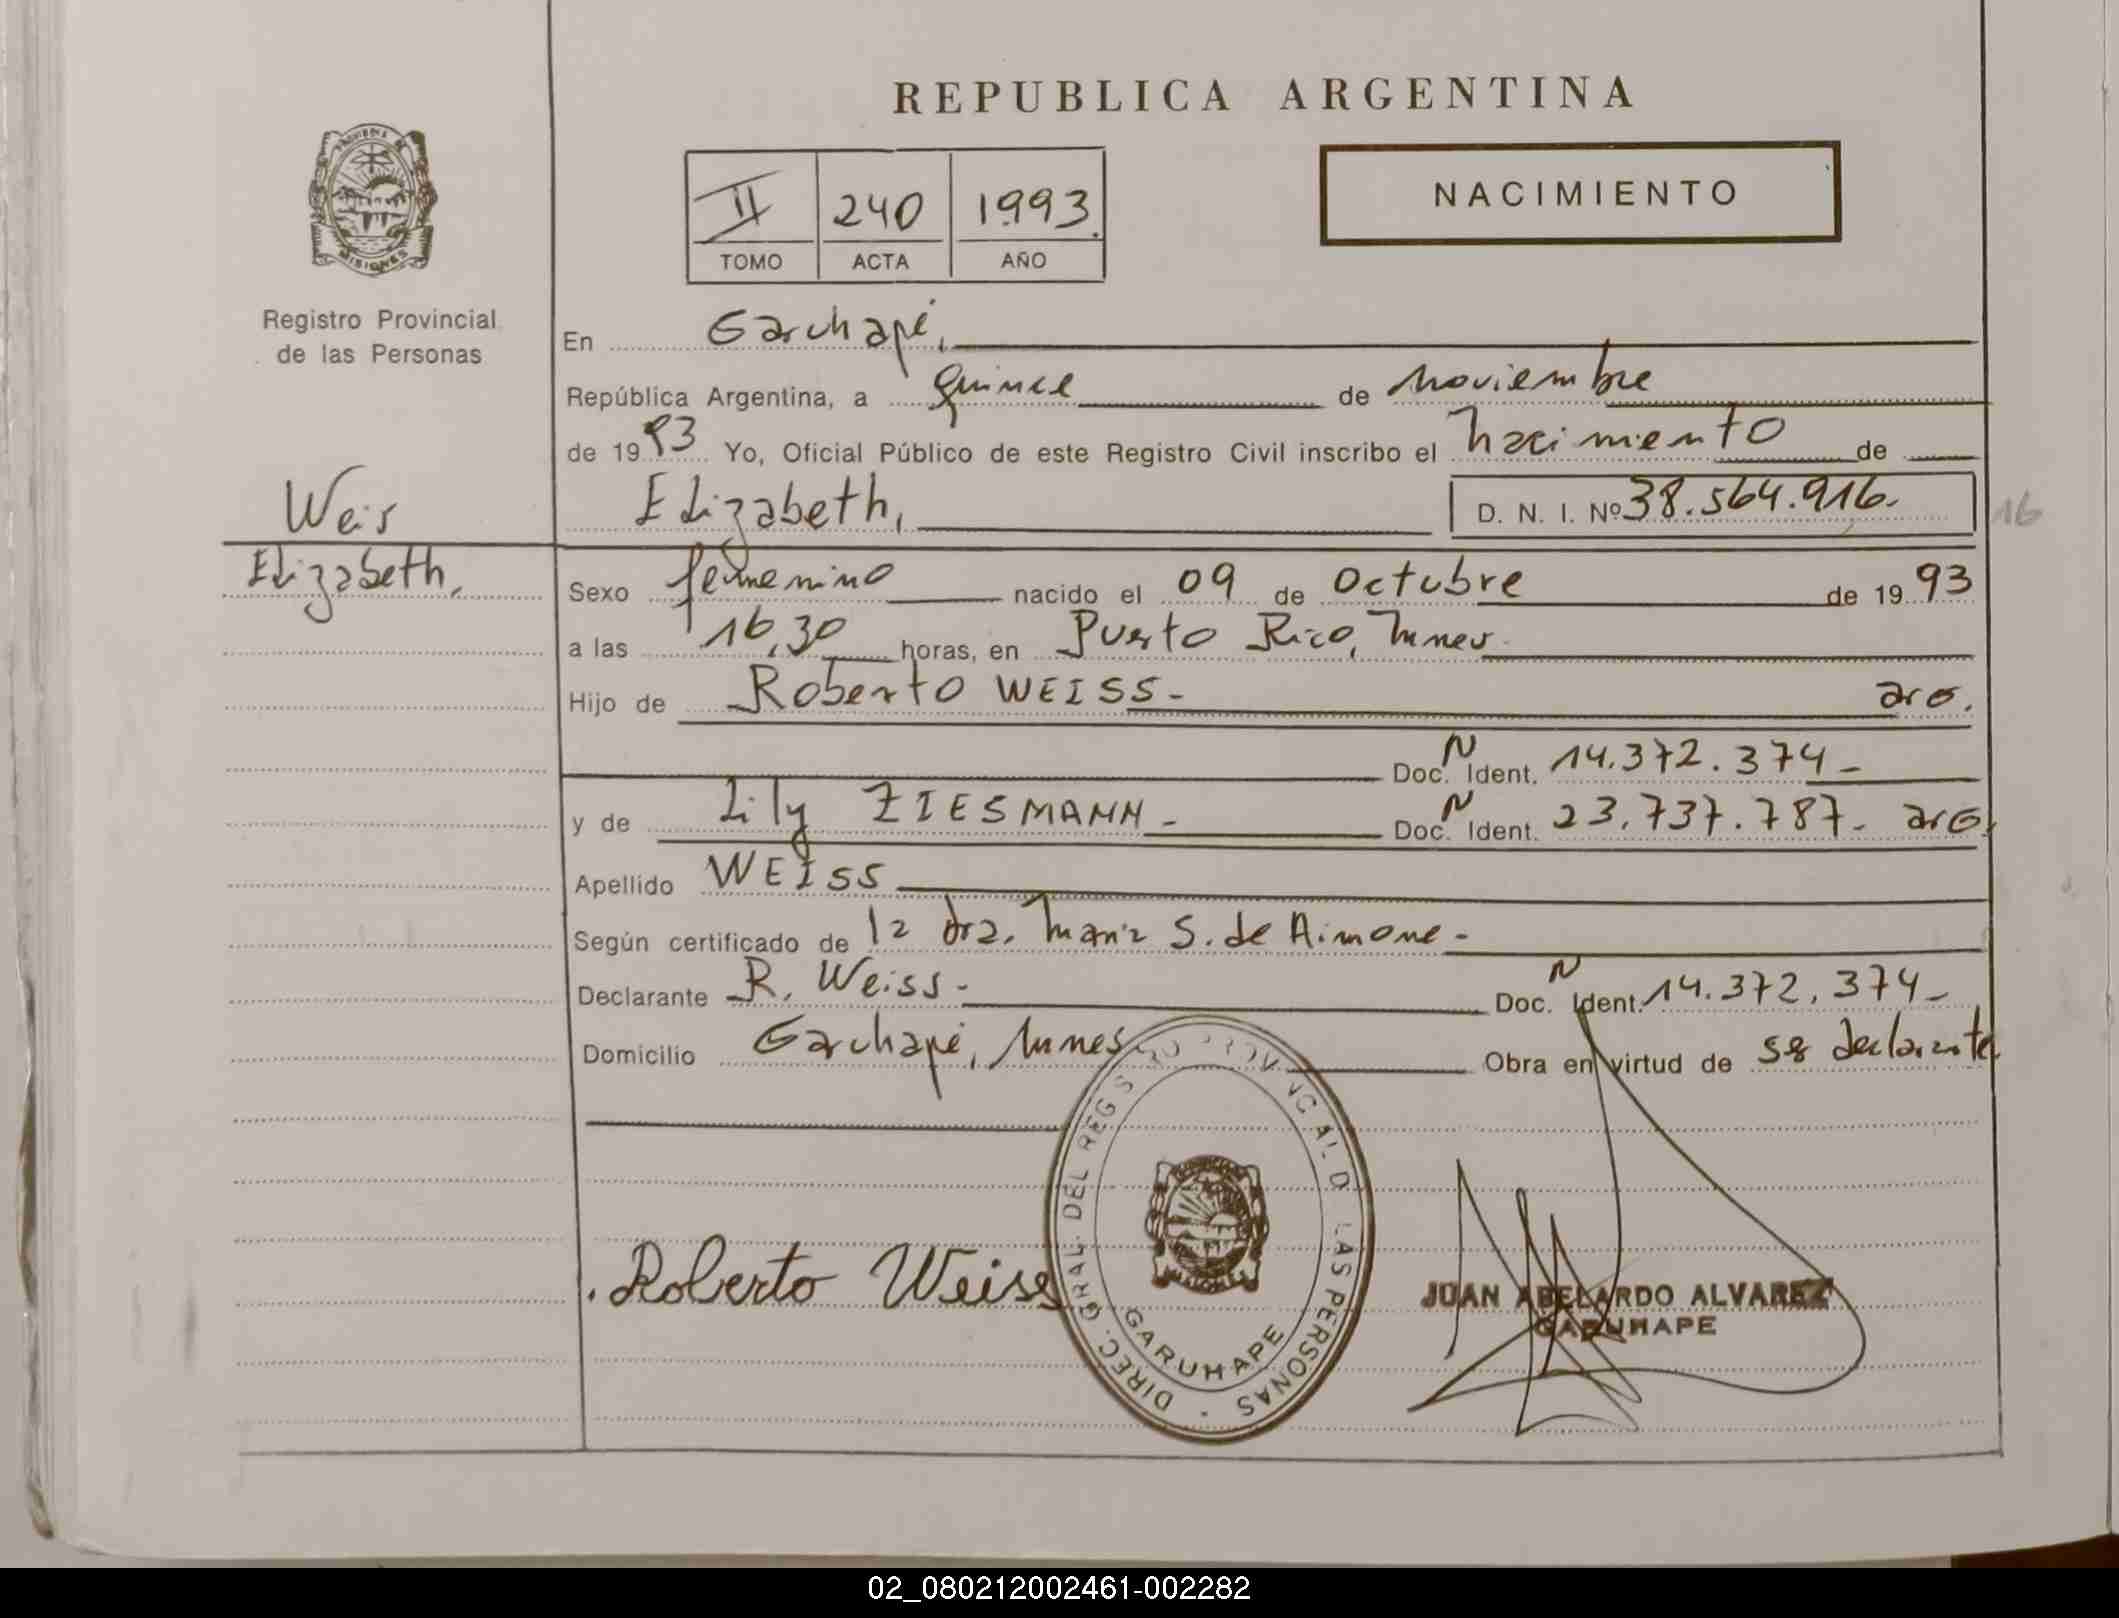 REPUBLICA ARGENTINA
PROVINCIA DE
MISIONES
II 240 1993.
TOMO ACTA AÑO
NACIMIENTO
Registro Provincial
de las Personas
En Garuhapé,
República Argentina, a quince de noviembre
de 1993 Yo, Oficial Público de este Registro Civil inscribo el nacimiento de
Weis
Elizabeth, D. N. I. Nº 38.564.916.
16
Elizabeth,
Sexo femenino nacido el 09 de Octubre de 1993
a las 16,30 horas, en Puerto Rico,
Hijo de Roberto WEISS- arg.
N
Doc. Ident. 14.372.374-
N
y de Lily ZIESMANN- Doc. Ident. 23.737.787- arg.
Apellido WEISS
Según certificado de la dra. Maria S. de Aimone-
N
Declarante R. Weiss- Doc. Ident. 14.372.374-
Domicilio Garuhapé, Obra en virtud de ser declarante
DIREC. GRAL. DEL REGISTRO PROVINCIAL DE LAS PERSONAS
GARUHAPE
Roberto Weiss
JUAN ABELARDO ALVAREZ
GARUHAPE
02_080212002461-002282